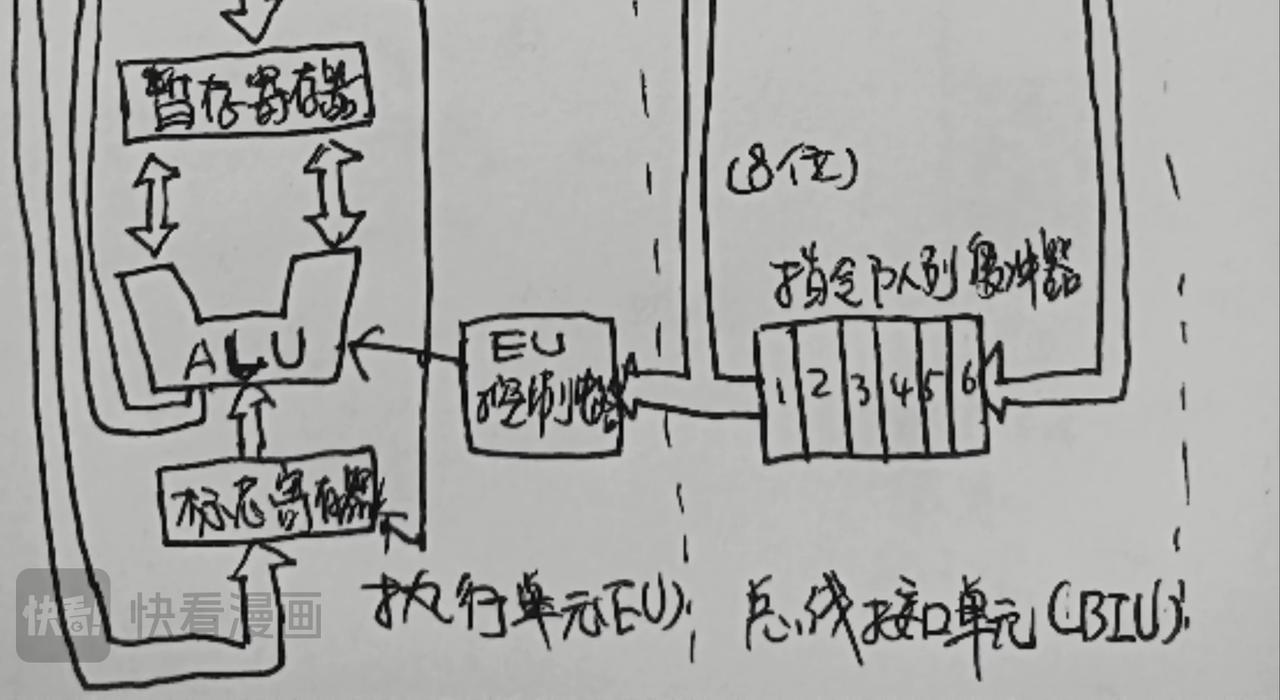 暂存寄存器
(8位)
指令队列缓冲器
ALU
EU
控制电路
1 2 3 4 5 6
标志寄存器
执行单元(EU)
总线接口单元(BIU)
快看!
快看漫画